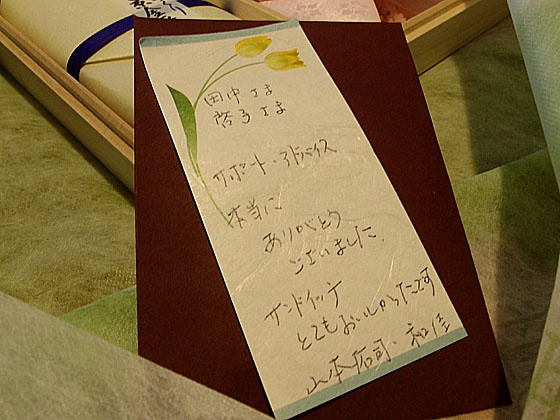 田中さま
啓子さま
サポート・アドバイス
本当に
ありがとう
ございました.
サンドイッチ
とてもおいしかったです
山本拓司・和佳